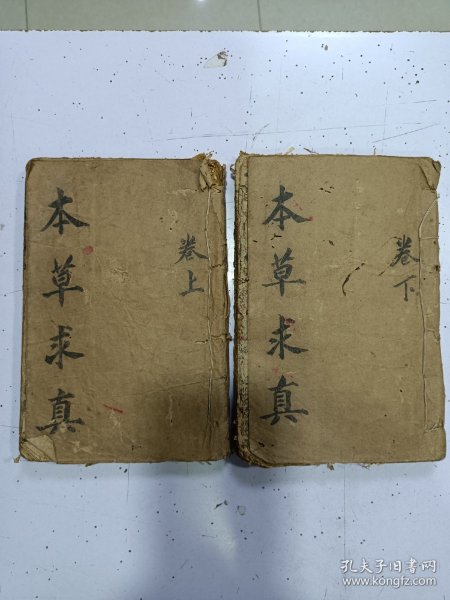 本草求真
卷上
本草求真
卷下
孔夫子旧书网
www.kongfz.com